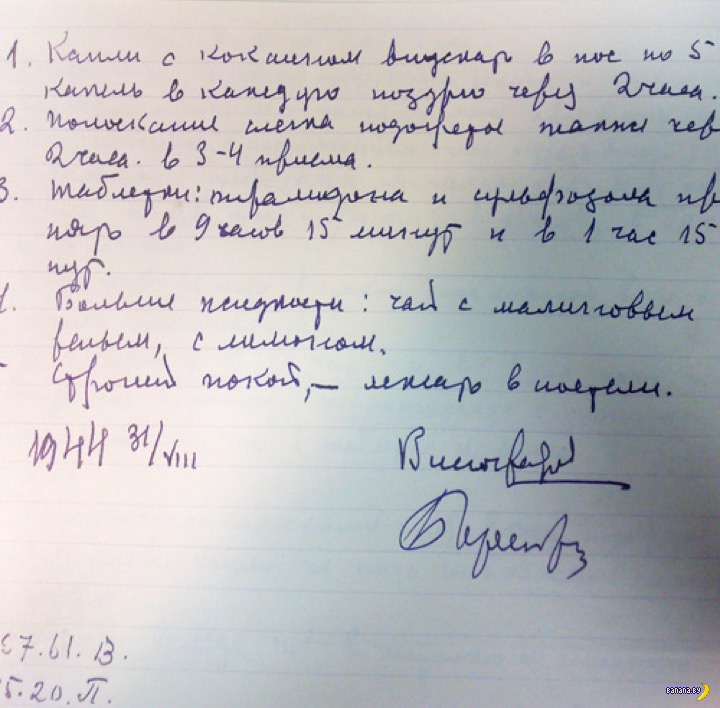 1. Капли с кокаином впускать в нос по 5
капель в каждую ноздрю через 2 часа.
2. Полоскание слегка подогретое также чер
2 часа. в 3-4 приема.
3. Таблетки: пирамидона и сульфозола пр
нять в 9 часов 15 минут и в 1 час 15
нут.
Больше жидкости: чай с малиновым
реньем, с лимоном.
Строгий покой, – лежать в постели.
1944 31/VIII
Виноградов
7.61. В.
5.20. П.
banana.by